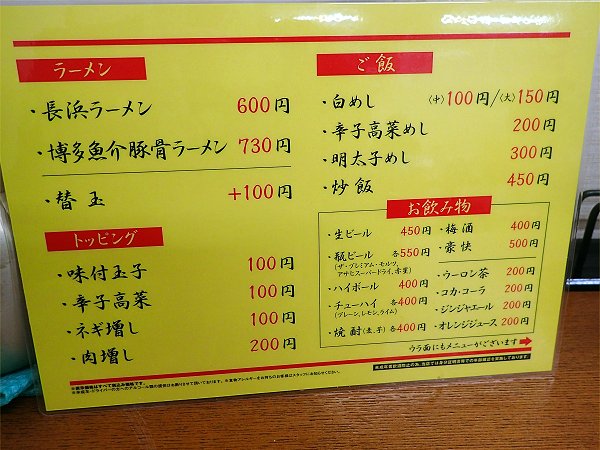 ラーメン
・長浜ラーメン 600円
・博多魚介豚骨ラーメン 730円
・替玉 +100円
トッピング
・味付玉子 100円
・辛子高菜 100円
・ネギ増し 100円
・肉増し 200円
ご飯
・白めし 〈中〉100円/〈大〉150円
・辛子高菜めし 200円
・明太子めし 300円
・炒飯 450円
お飲み物
・生ビール 450円
・瓶ビール 各550円
(ザ・プレミアム・モルツ、
アサヒスーパードライ、赤星)
・ハイボール 400円
・チューハイ 各400円
(プレーン、レモン、ライム)
・焼酎(麦、芋) 各400円
・梅酒 400円
・豪快 500円
・ウーロン茶 200円
・コカ・コーラ 200円
・ジンジャエール 200円
・オレンジジュース 200円
ウラ面にもメニューがございます
※表示価格はすべて税込み価格です。